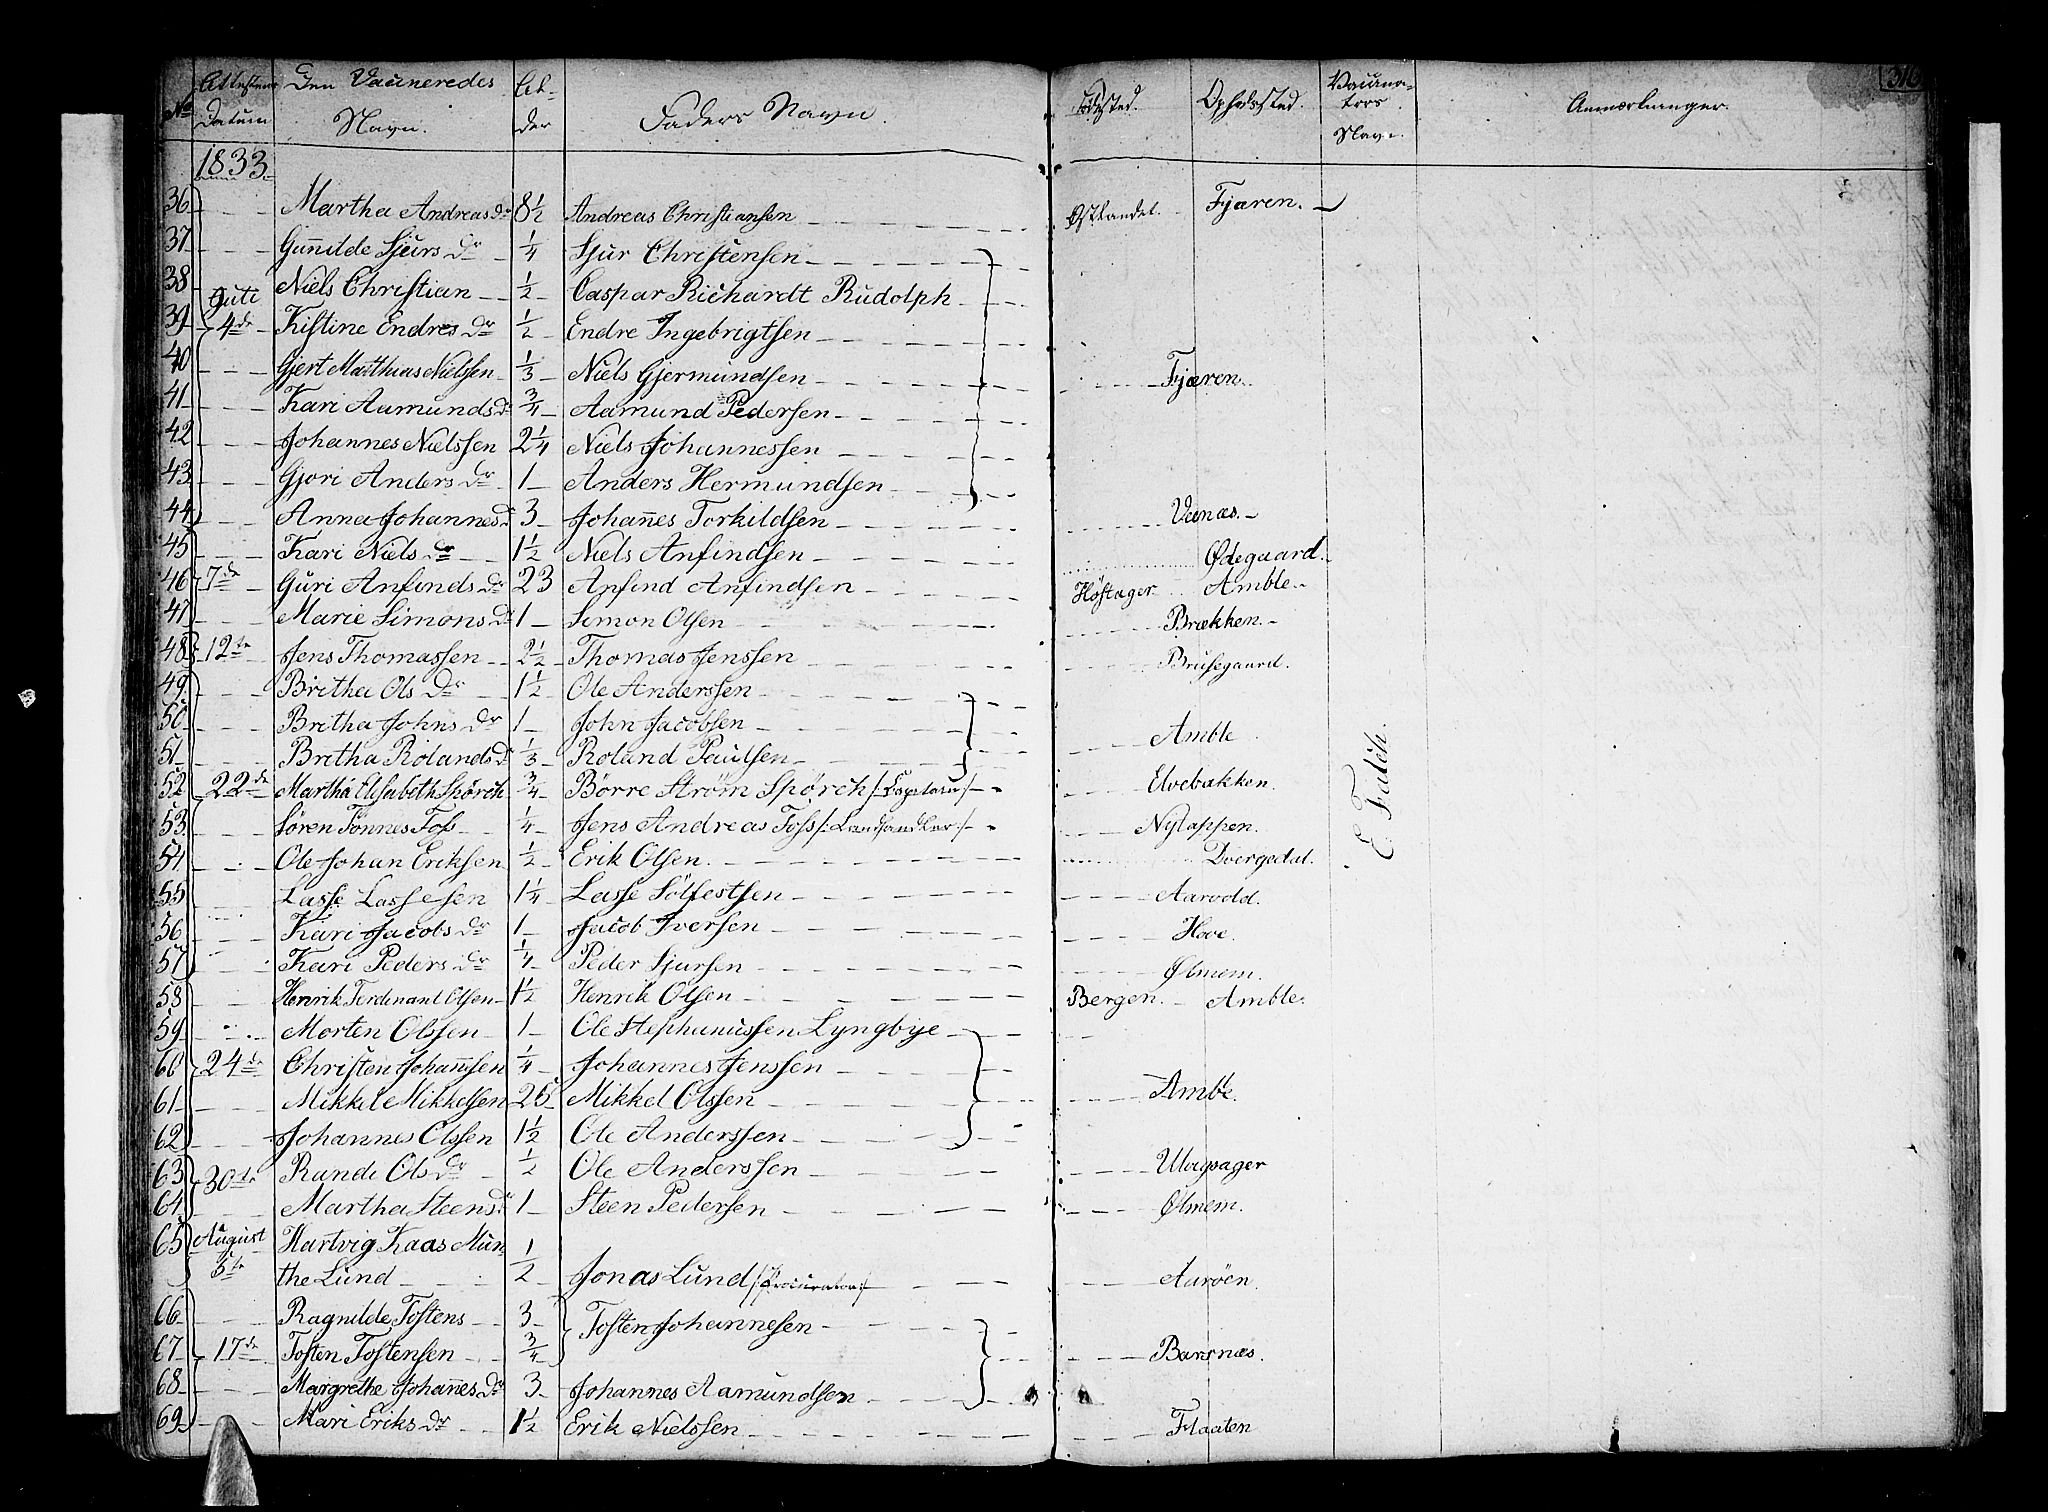 316
No Attestens Datum Den Vaccineredes Navn. Al-der Faders Navn. Fødested. Opholdssted. Vaccina-tors Navn. Anmærkninger.
1833
36 Martha Andreas Dr 8 1/2 Andreas Christiansen Østlandet. Fjæren.
37 Gunnilde Sjurs Dr 1/4 Sjur Christensen
38 Niels Christian 1/2 Caspar Richardt Rudolph
39 Juli 4de Kistine Endres Dr 1/2 Endre Ingebrigtsen
40 Gjert Matthias Nielssen 1/3 Niels Gjermundsen Fjæren.
41 Kari Aamunds Dr 3/4 Aamund Pedersen
42 Johannes Nielssen 2 1/4 Niels Johannessen
43 Gjøri Anders Dr 1 Anders Hermundsen
44 Anna Johannes Dr 3 Johannes Torkildsen
45 Kari Niels Dr 1 1/2 Niels Anfindsen Ødegaard.
46 7de Guri Anfinds Dr 23 Anfind Anfindsen Høstager Amble.
47 Marie Simons Dr 1 Simon Olsen Brækken.
48 12te Jens Thomassen 2 1/2 Thomas Jenssen Brusegaard.
49 Britha Ols Dr 1 1/2 Ole Anderssen
50 Britha Johns Dr 1 John Jacobsen Amble
51 Britha Rolands Dr 1/3 Roland Paulsen
52 22de Martha Elisabeth Spørch 3/4 Børre Strøm Spørch Elvebakken.
53 Søren Tønnes Foss 1/4 Jens Andreas Foss /:Landhandler:/ Nylappen.
54 Ole Johan Eriksen 1/2 Erik Olsen. Dvergedal.
E. Falch.
55 Lasse Lassesen 1 1/4 Lasse Sølfestsen
56 Kari Jacobs Dr 1 Jacob Iversen Hove.
57 Kari Peders Dr 1/4 Peder Sjursen Ølmem.
58 Henrik Ferdinant Olsen 1 1/2 Henrik Olsen Bergen. Amble.
59 Morten Olssen 1 Ole Stephanussen Lyngbye
60 24de Christen Johannsen 1/4 Johannes Jenssen
61 Mikkel Mikkelsen 26 Mikkel Olssen Amble.
62 Johannes Olssen 1 1/2 Ole Anderssen
63 30te Rande Ols Dr 1/2 Ole Anderssen
64 Martha Steens Dr 1 Steen Pedersen Ølmem.
65 August 5te Hartvig Kaas Mun
the Lund 1/2 Jonas Lund /:Procurator:/ Aarøen.
66 Ragnilde Tostens 3 Tosten Johannesen
67 17de Tosten Tostensen 3/4 Barsnæs.
68 Margrethe Johannes Dr 3 Johannes Aamundsen
69 Mari Eriks Dr 1 1/2 Erik Nielssen Flaaten